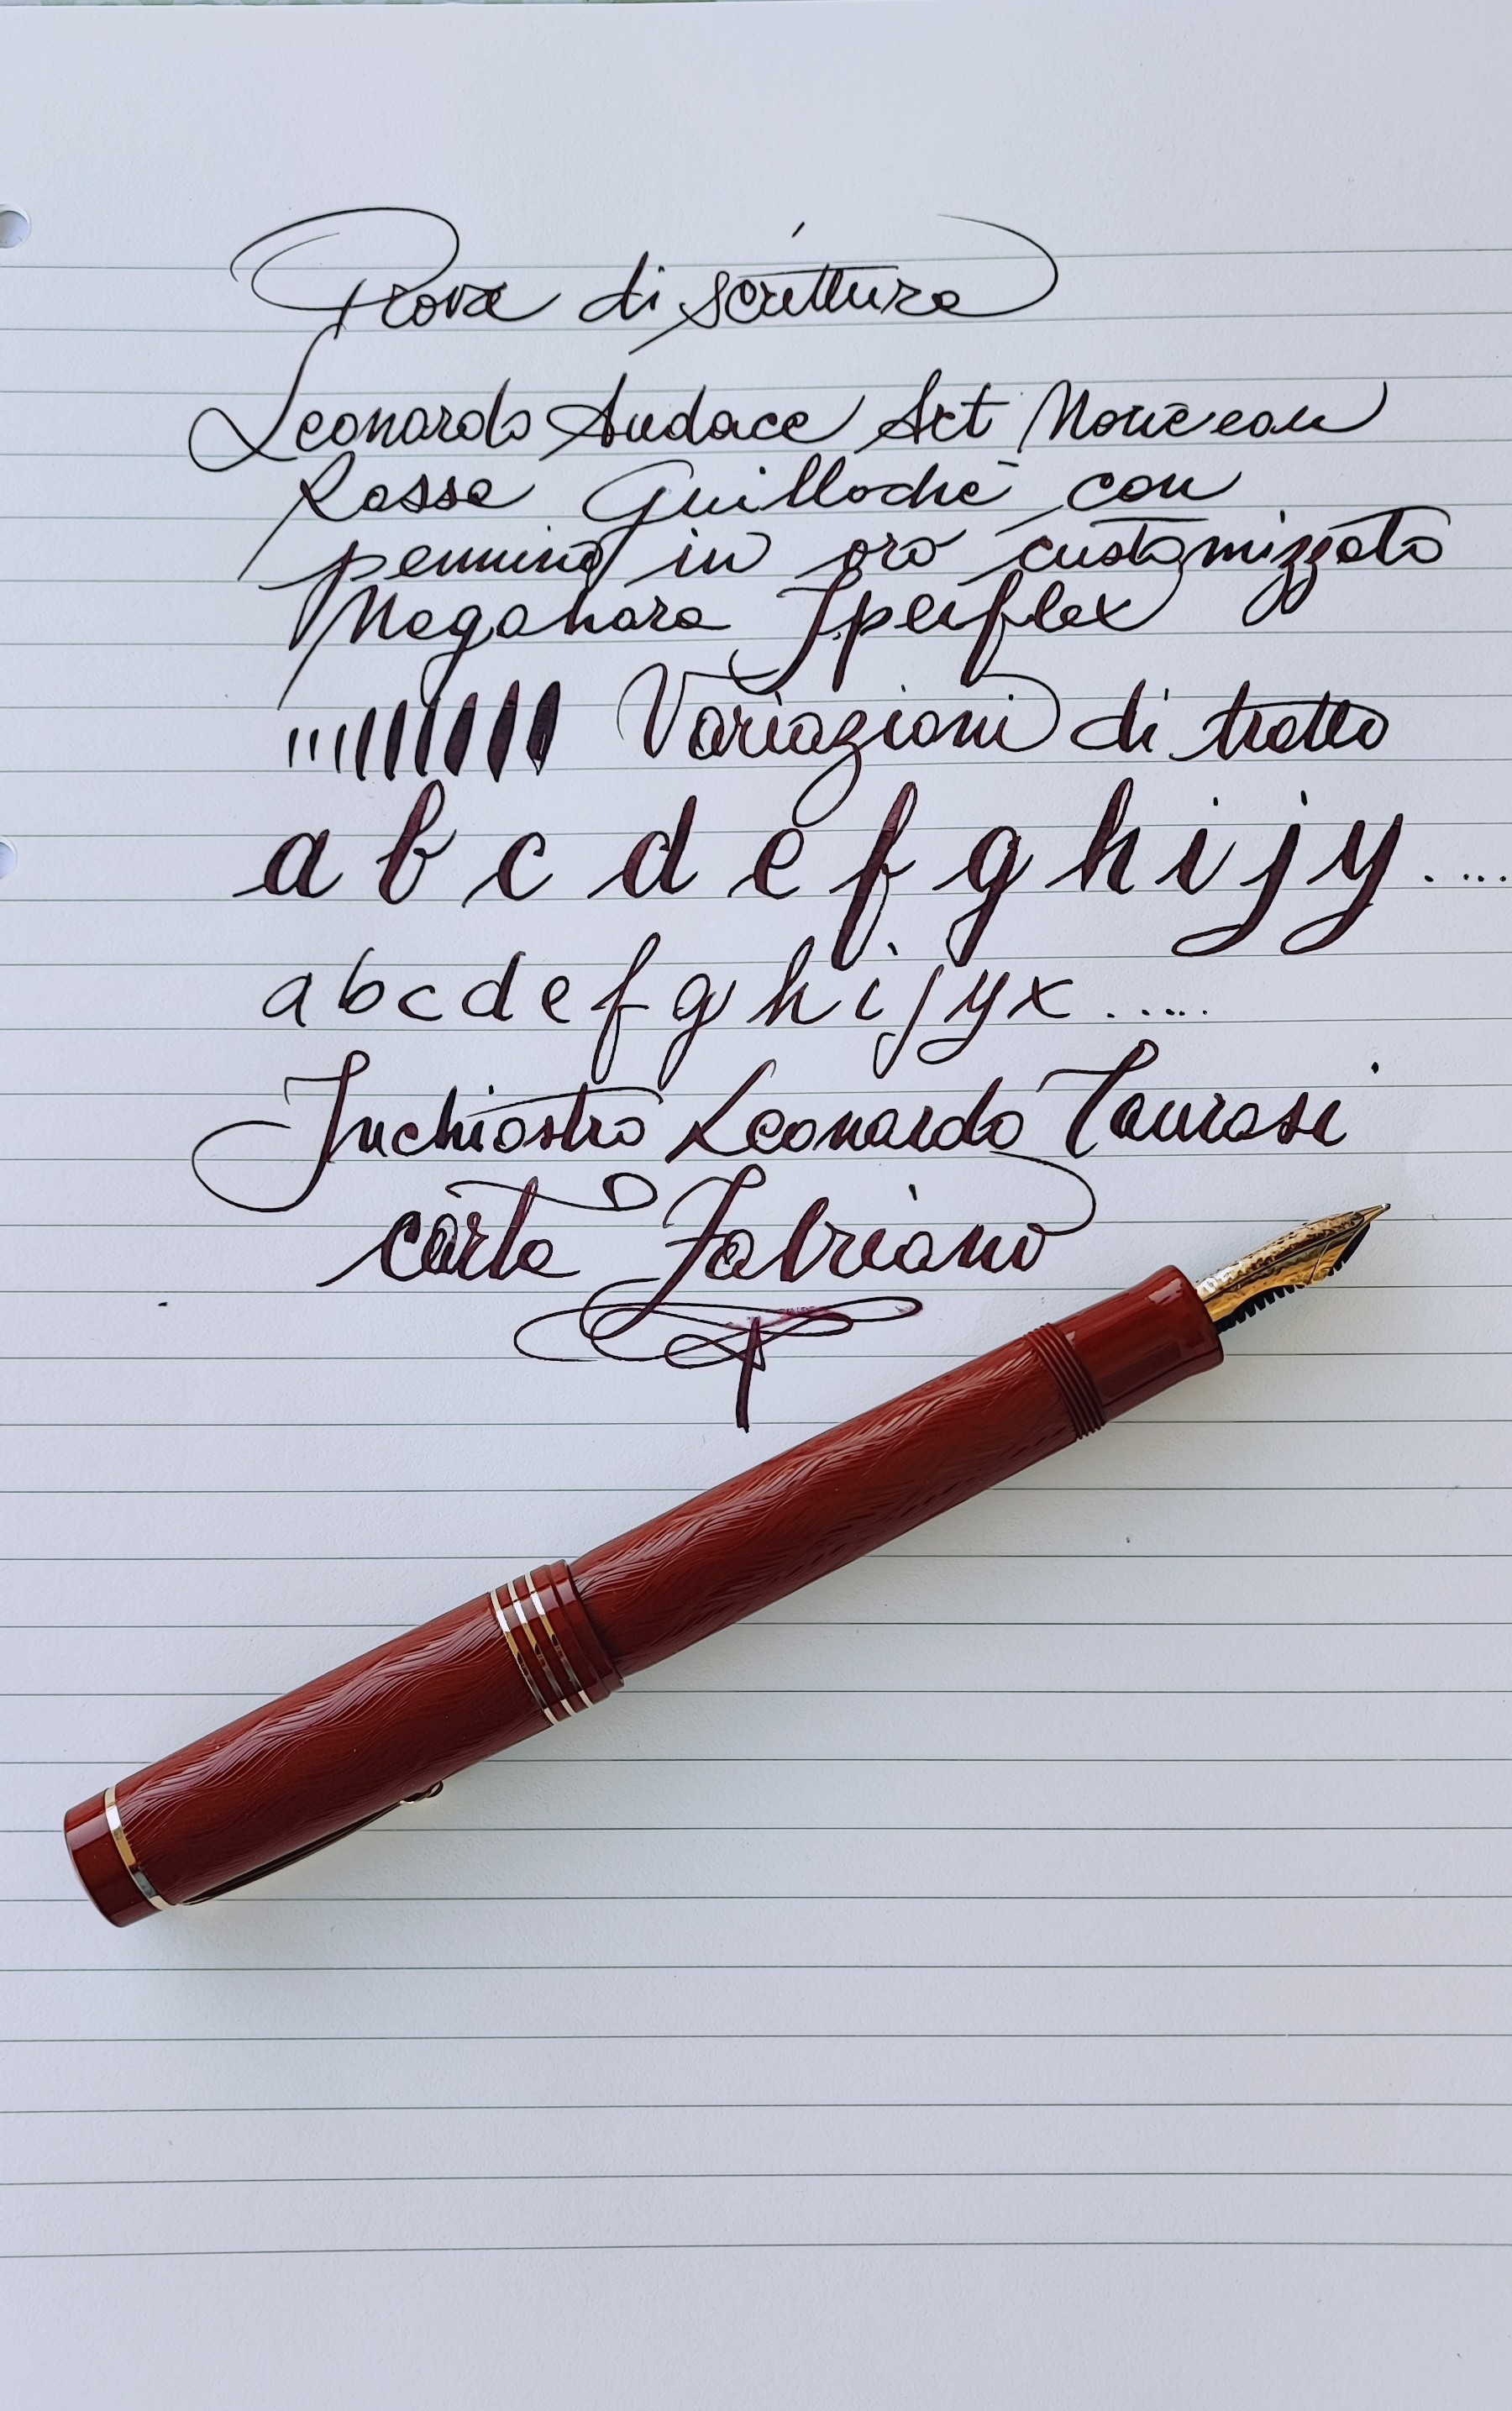 Prova di scrittura
Leonardo Audace Art Nouveau
Rossa Guillochè con
pennino in oro customizzato
Nagahara Iperflex
Variazioni di tratto
a b c d e f g h i j y . . . .
a b c d e f g h i j y x . . . . .
Inchiostro Leonardo Taurasi
carta Fabriano